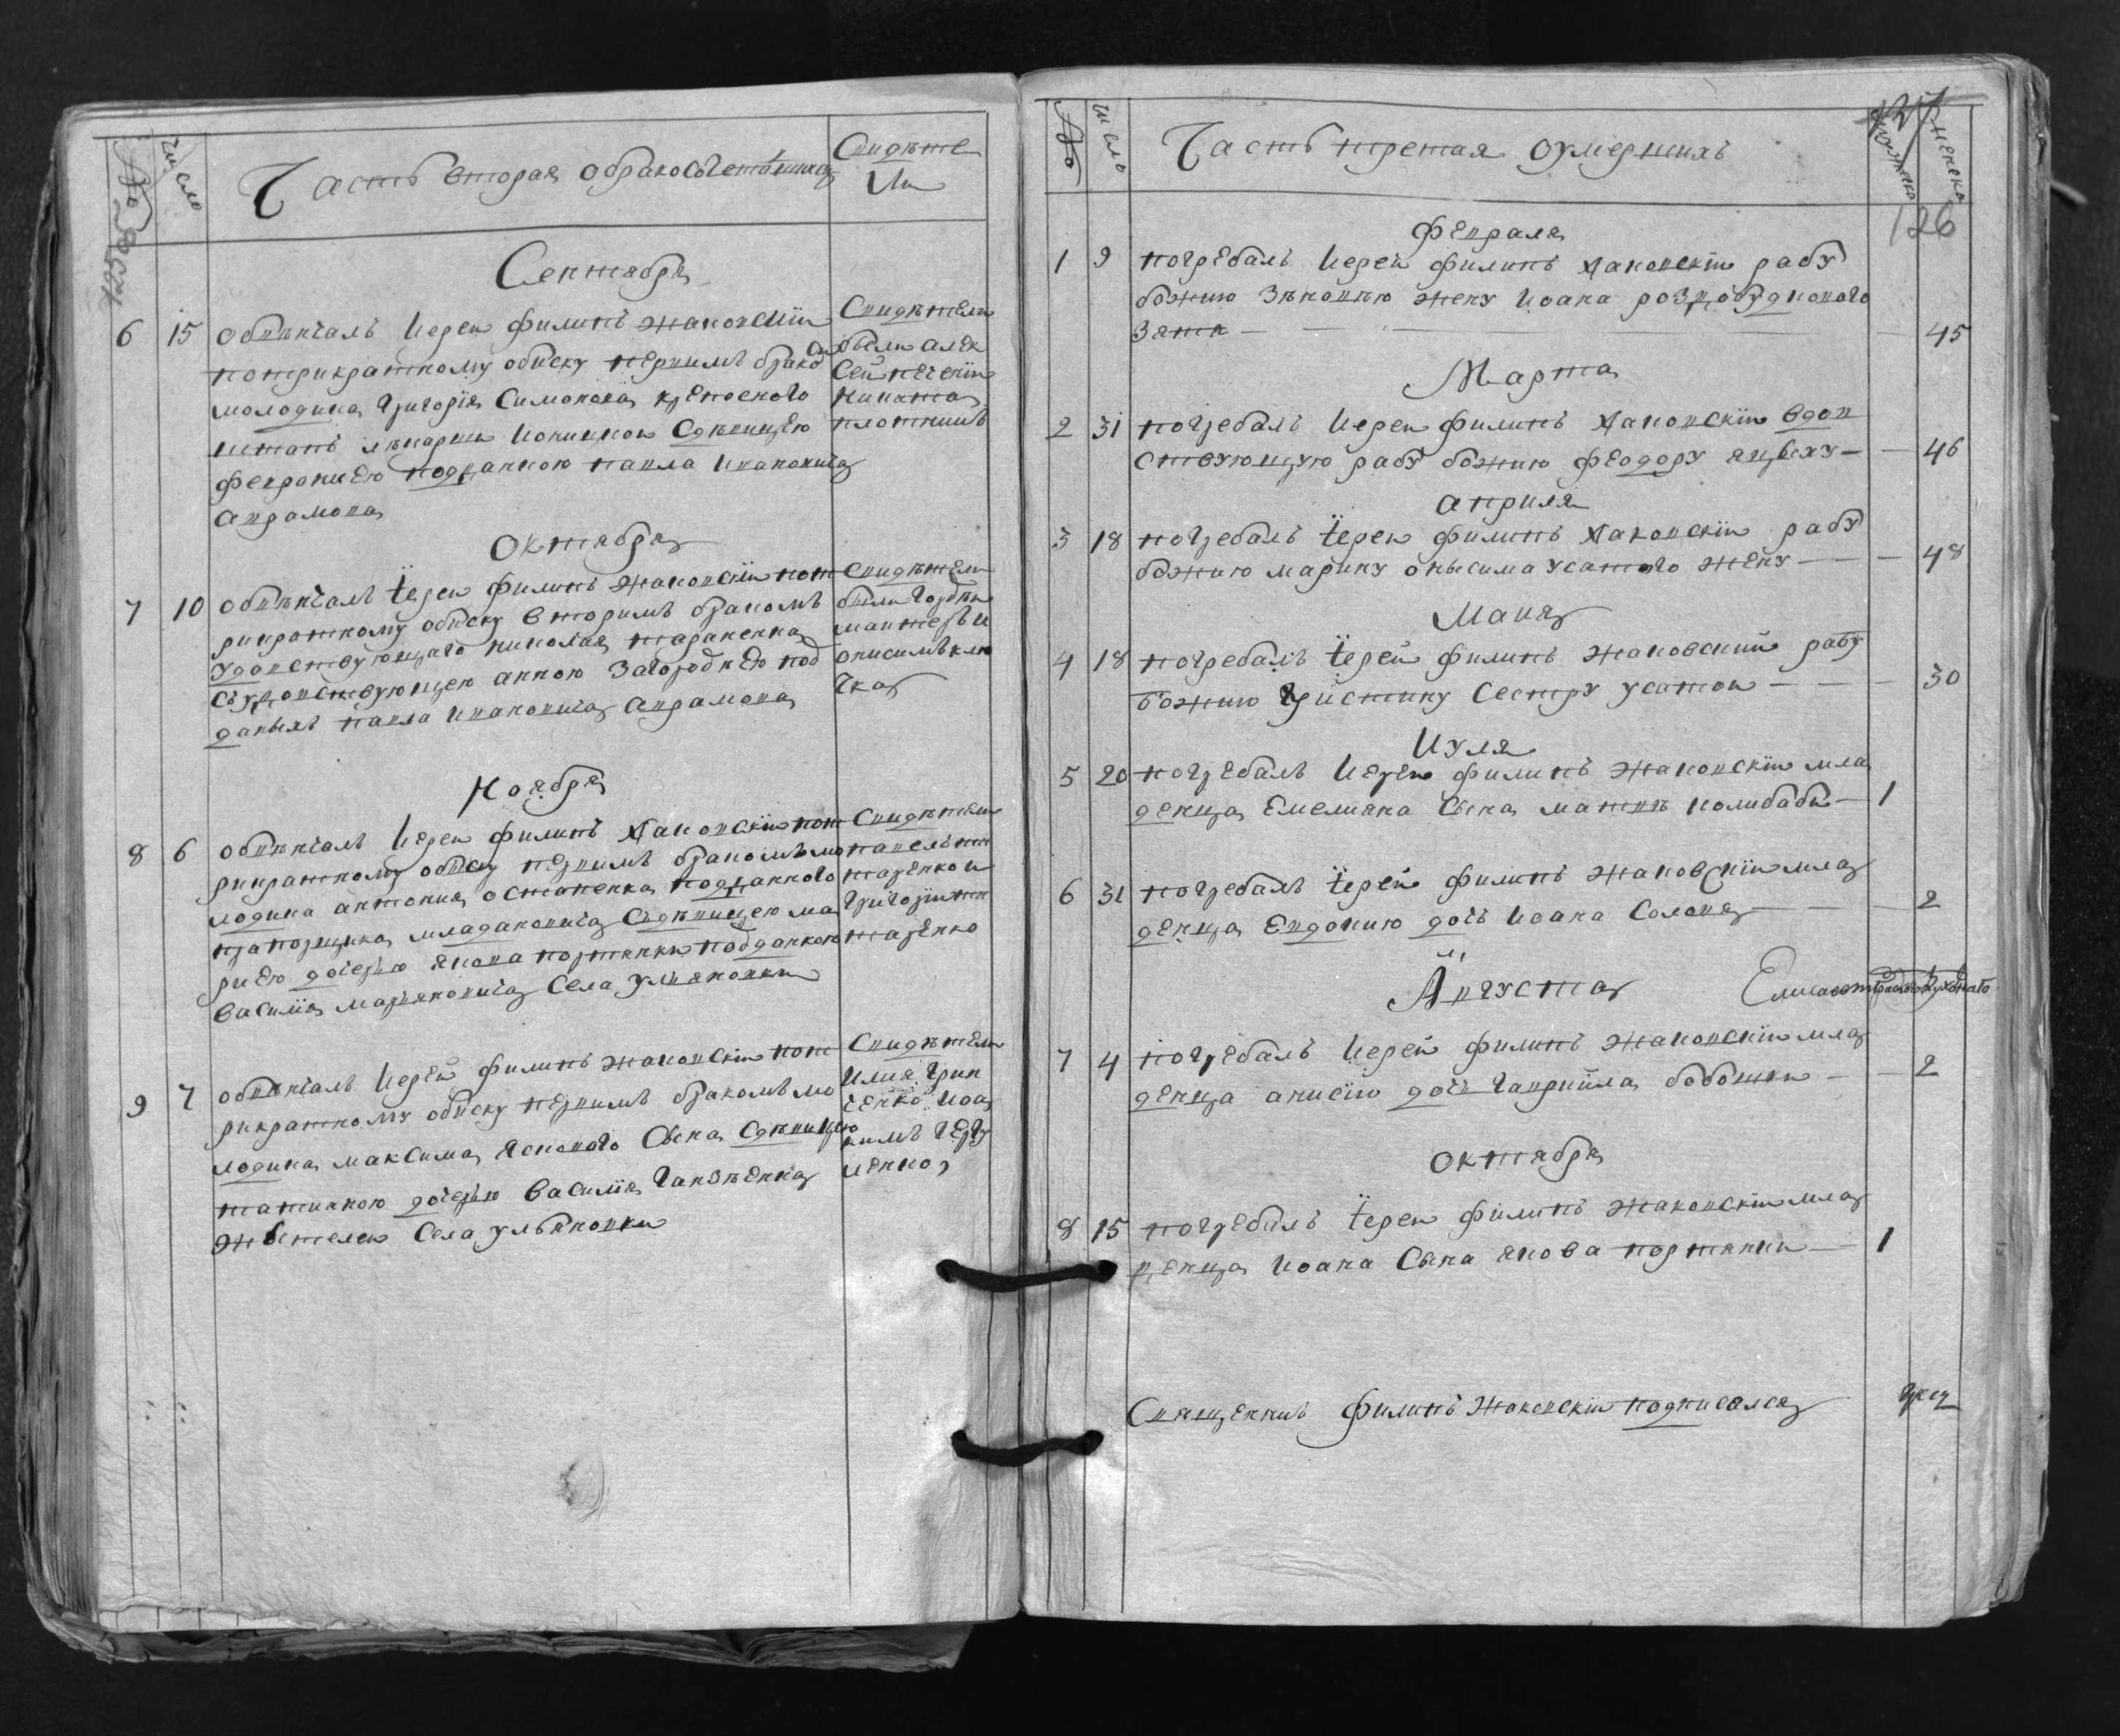 №
число
Часть вторая обракосочетавшихся
Свидѣте
ли
Сентября
6 15 обвѣнчалъ Иерей Филипъ Жаковскїй
потрикратному обиску первимъ бракомъ
молодика Григорїя Симонова
Феврониею подданною павла ивановича
аврамова
Свидѣтели
были алек
сей
никита
плотникъ
Октября
7 10 обвѣнчалъ Їерей Филипъ Жаковскїй пот
рикратному обиску вторимъ бракомъ
удовствующаго николая тараненка
съудовствующею анною Загороднею под
даныхъ павла ивановича аврамова
Свидѣтели
были
и
онисимъ клю
чка
Ноября
8 6 обвѣнчалъ Иерей Филипъ Жаковскїй пот
рикратному обиску первимъ бракомъ мо
лодика антония остапенка подданного
прапорщика младановича Сдѣвицею ма
риею дочерью якова портянки подданною
василїя марьяновича Села ульяновки
Свидѣтели
павелъ пи
таренко и
Григорїи пи
таренко
9 7 обвѣнчалъ Иерей Филипъ Жаковскїй пот
рикратному обиску первимъ бракомъ мо
лодика максима Яснового Сына Сдѣвицею
татияною дочерью василїя Ганзѣенка
жытелей Села ульяновки
Свидѣтели
Илия Грин
ченко Иоа
кимъ Гергу
ленко
№
число
Часть третая оумершихъ
мужеска
женска
127
126
Февраля
1 9 погребалъ Иерей Филипъ Жаковскїй рабу
божию Зѣновию жену Иоана роздобудкового
Зятя — 45
Марта
2 31 погребалъ Иерей Филипъ Жаковскїй вдов
ствующую рабу божию Феодору яцыху — 46
априля
3 18 погребалъ Їерей Филипъ Жаковскїй рабу
божию марину онысима усатого жену — 48
Маия
4 18 погребалъ Їерей Филипъ Жаковский рабу
божию Христину Сестру усатой — 30
Иуля
5 20 погребалъ Иерей Филипъ Жаковскїй мла
денца Емелияна Сына матвѣ колибабы — 1
6 31 погребалъ Їерей Филипъ Жаковскїй мла
денца Евдокию дочь Иоана Солопа — 2
Августа
7 4 погребалъ Иерей Филипъ Жаковскїй мла
денца анисїю дочь Гавриїла бобошки — 2
Октября
8 15 погребалъ Їерей Филипъ Жаковскїй мла
денца Иоана Сына якова портянки — 1
Священникъ Филипъ Жаковскїй подписалса